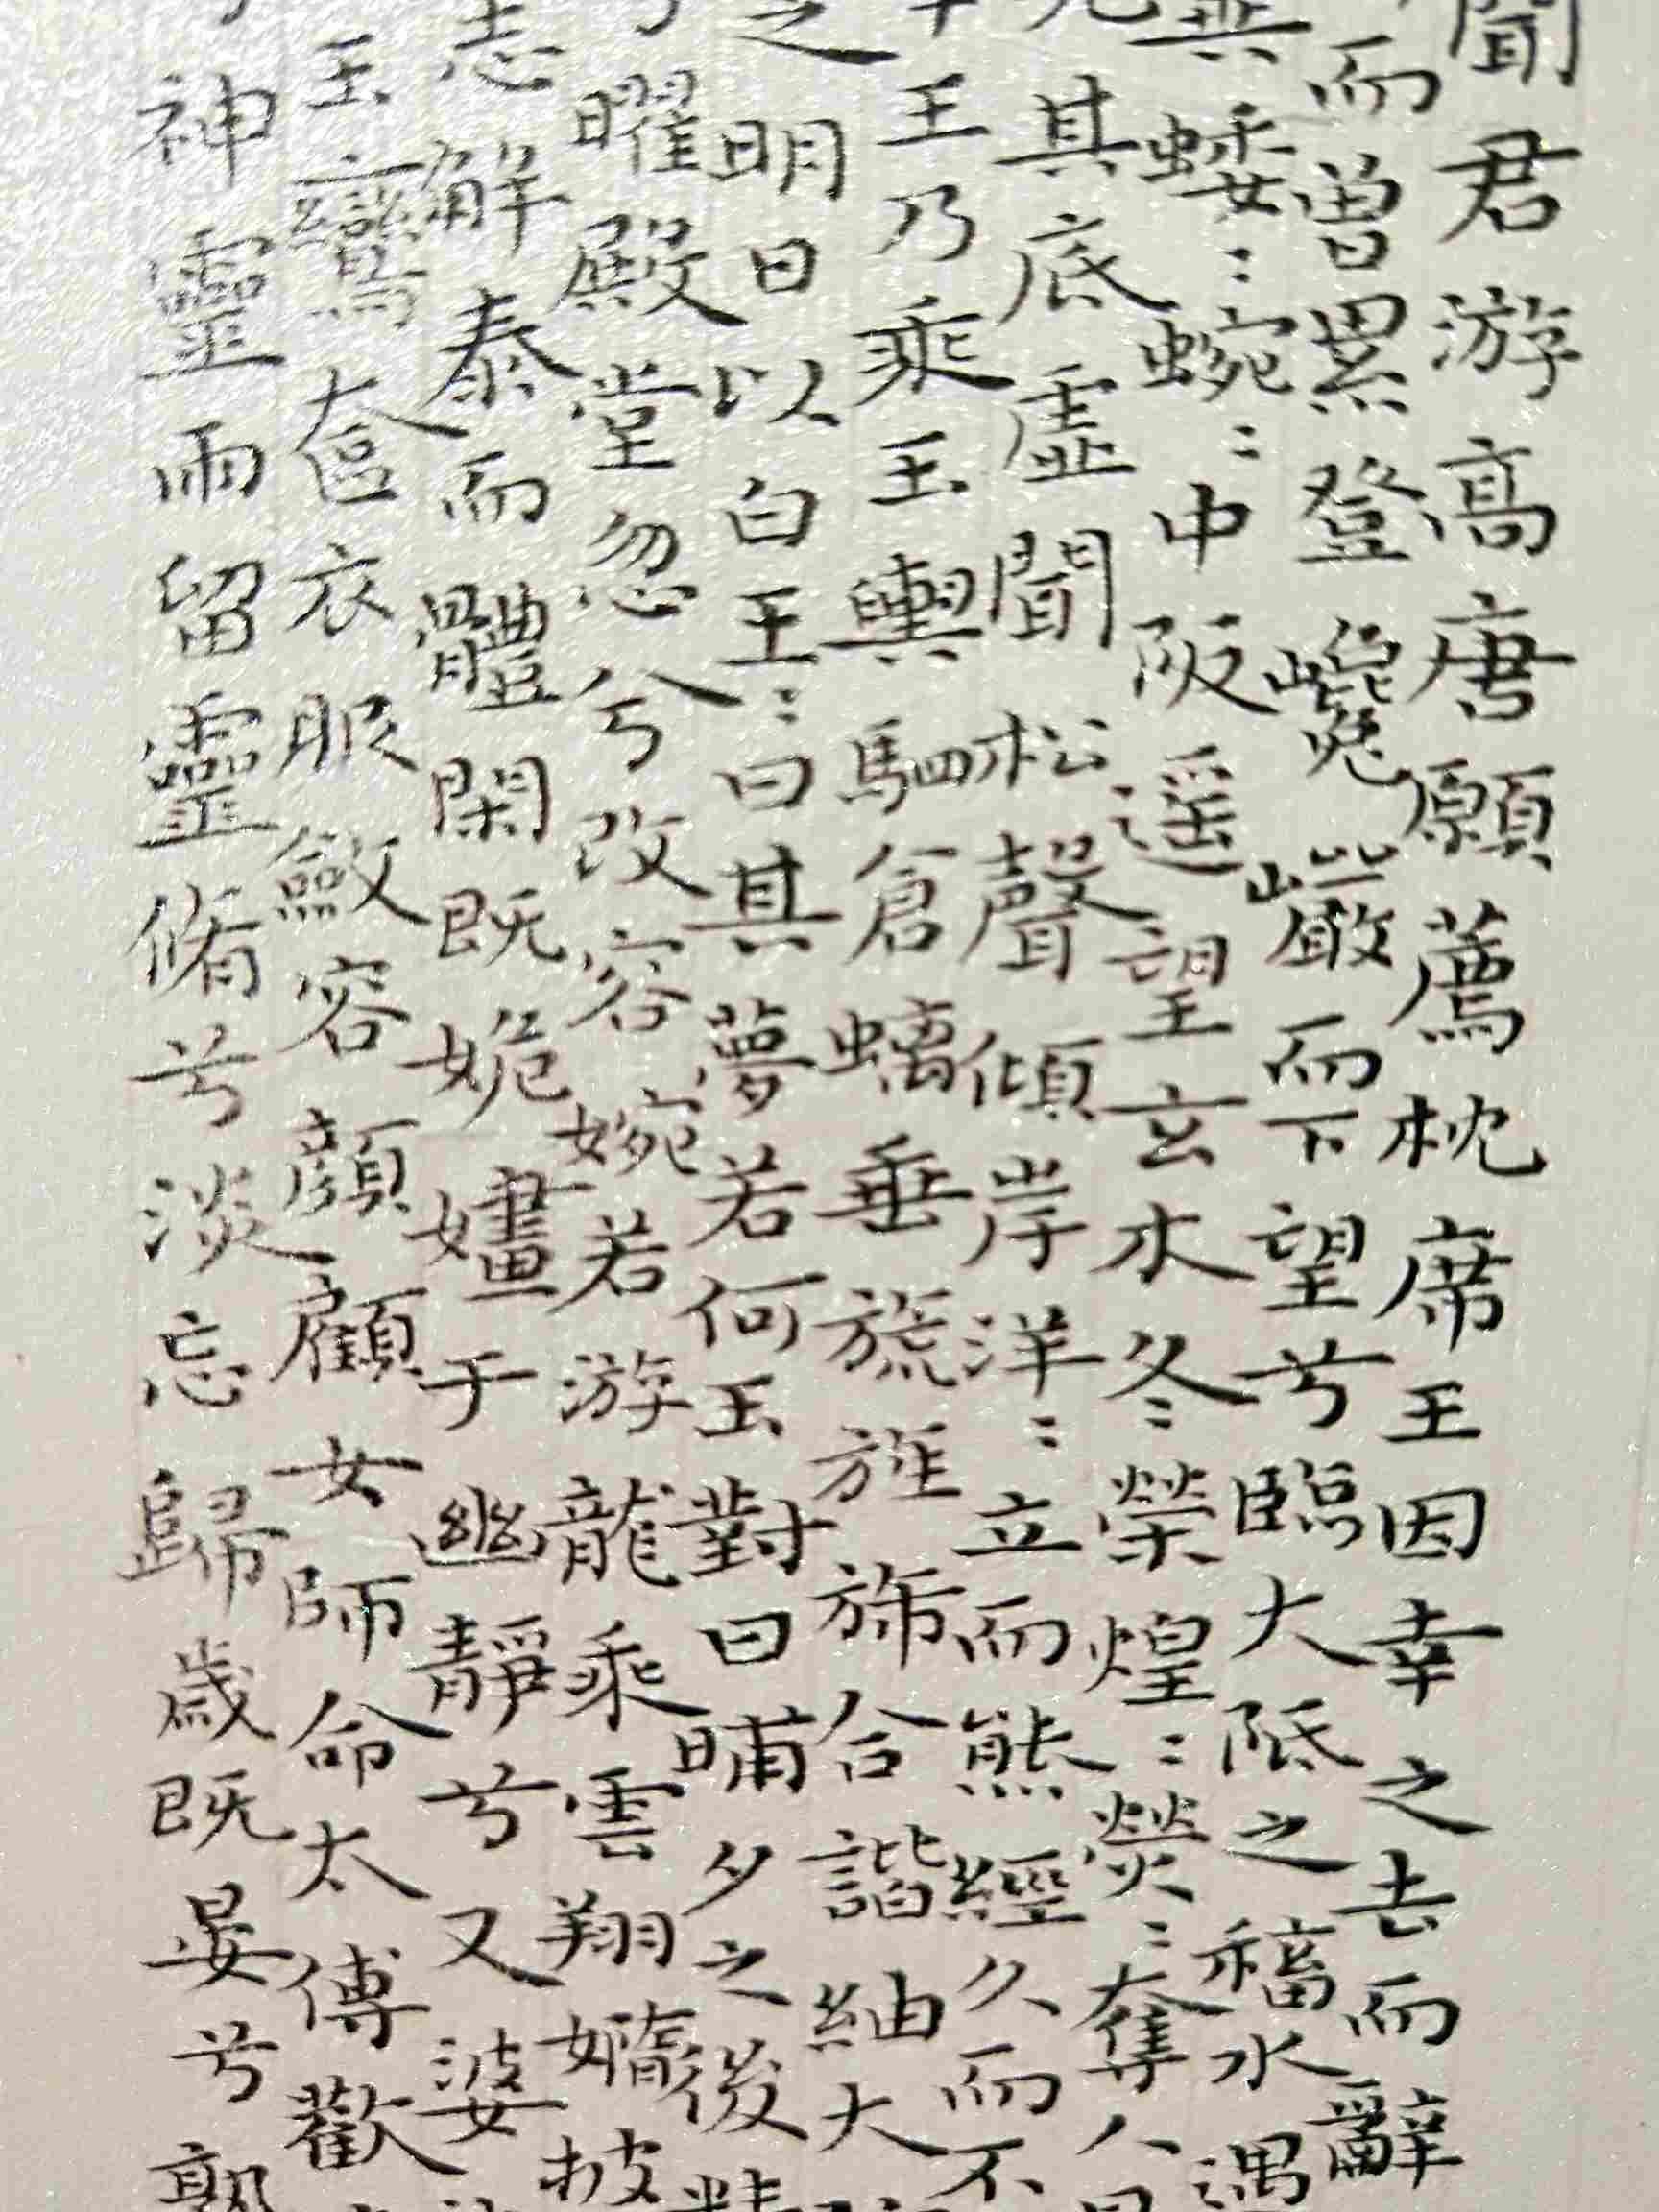 聞君游高唐願薦枕席王因幸之去而辭
而曾累登巉巖而下望兮臨大阺之稸水遇
蜲〻蜿〻中阪遥望玄木冬〻榮煌〻熒〻奪人
其底虛聞松聲傾岸洋〻立而熊經久而不
王乃乘玉輿駟倉螭垂旒旌旆合諧紬大
之明日以白王〻曰其夢若何王對曰晡夕之後
曜殿堂忽兮改容婉若游龍乘雲翔嫷披
志解泰而體閑既姽嫿于幽靜兮又婆
玉鸞奩衣服斂容顔顧女師命太傅歡
神靈雨留靈脩兮淡忘歸歲既晏兮孰